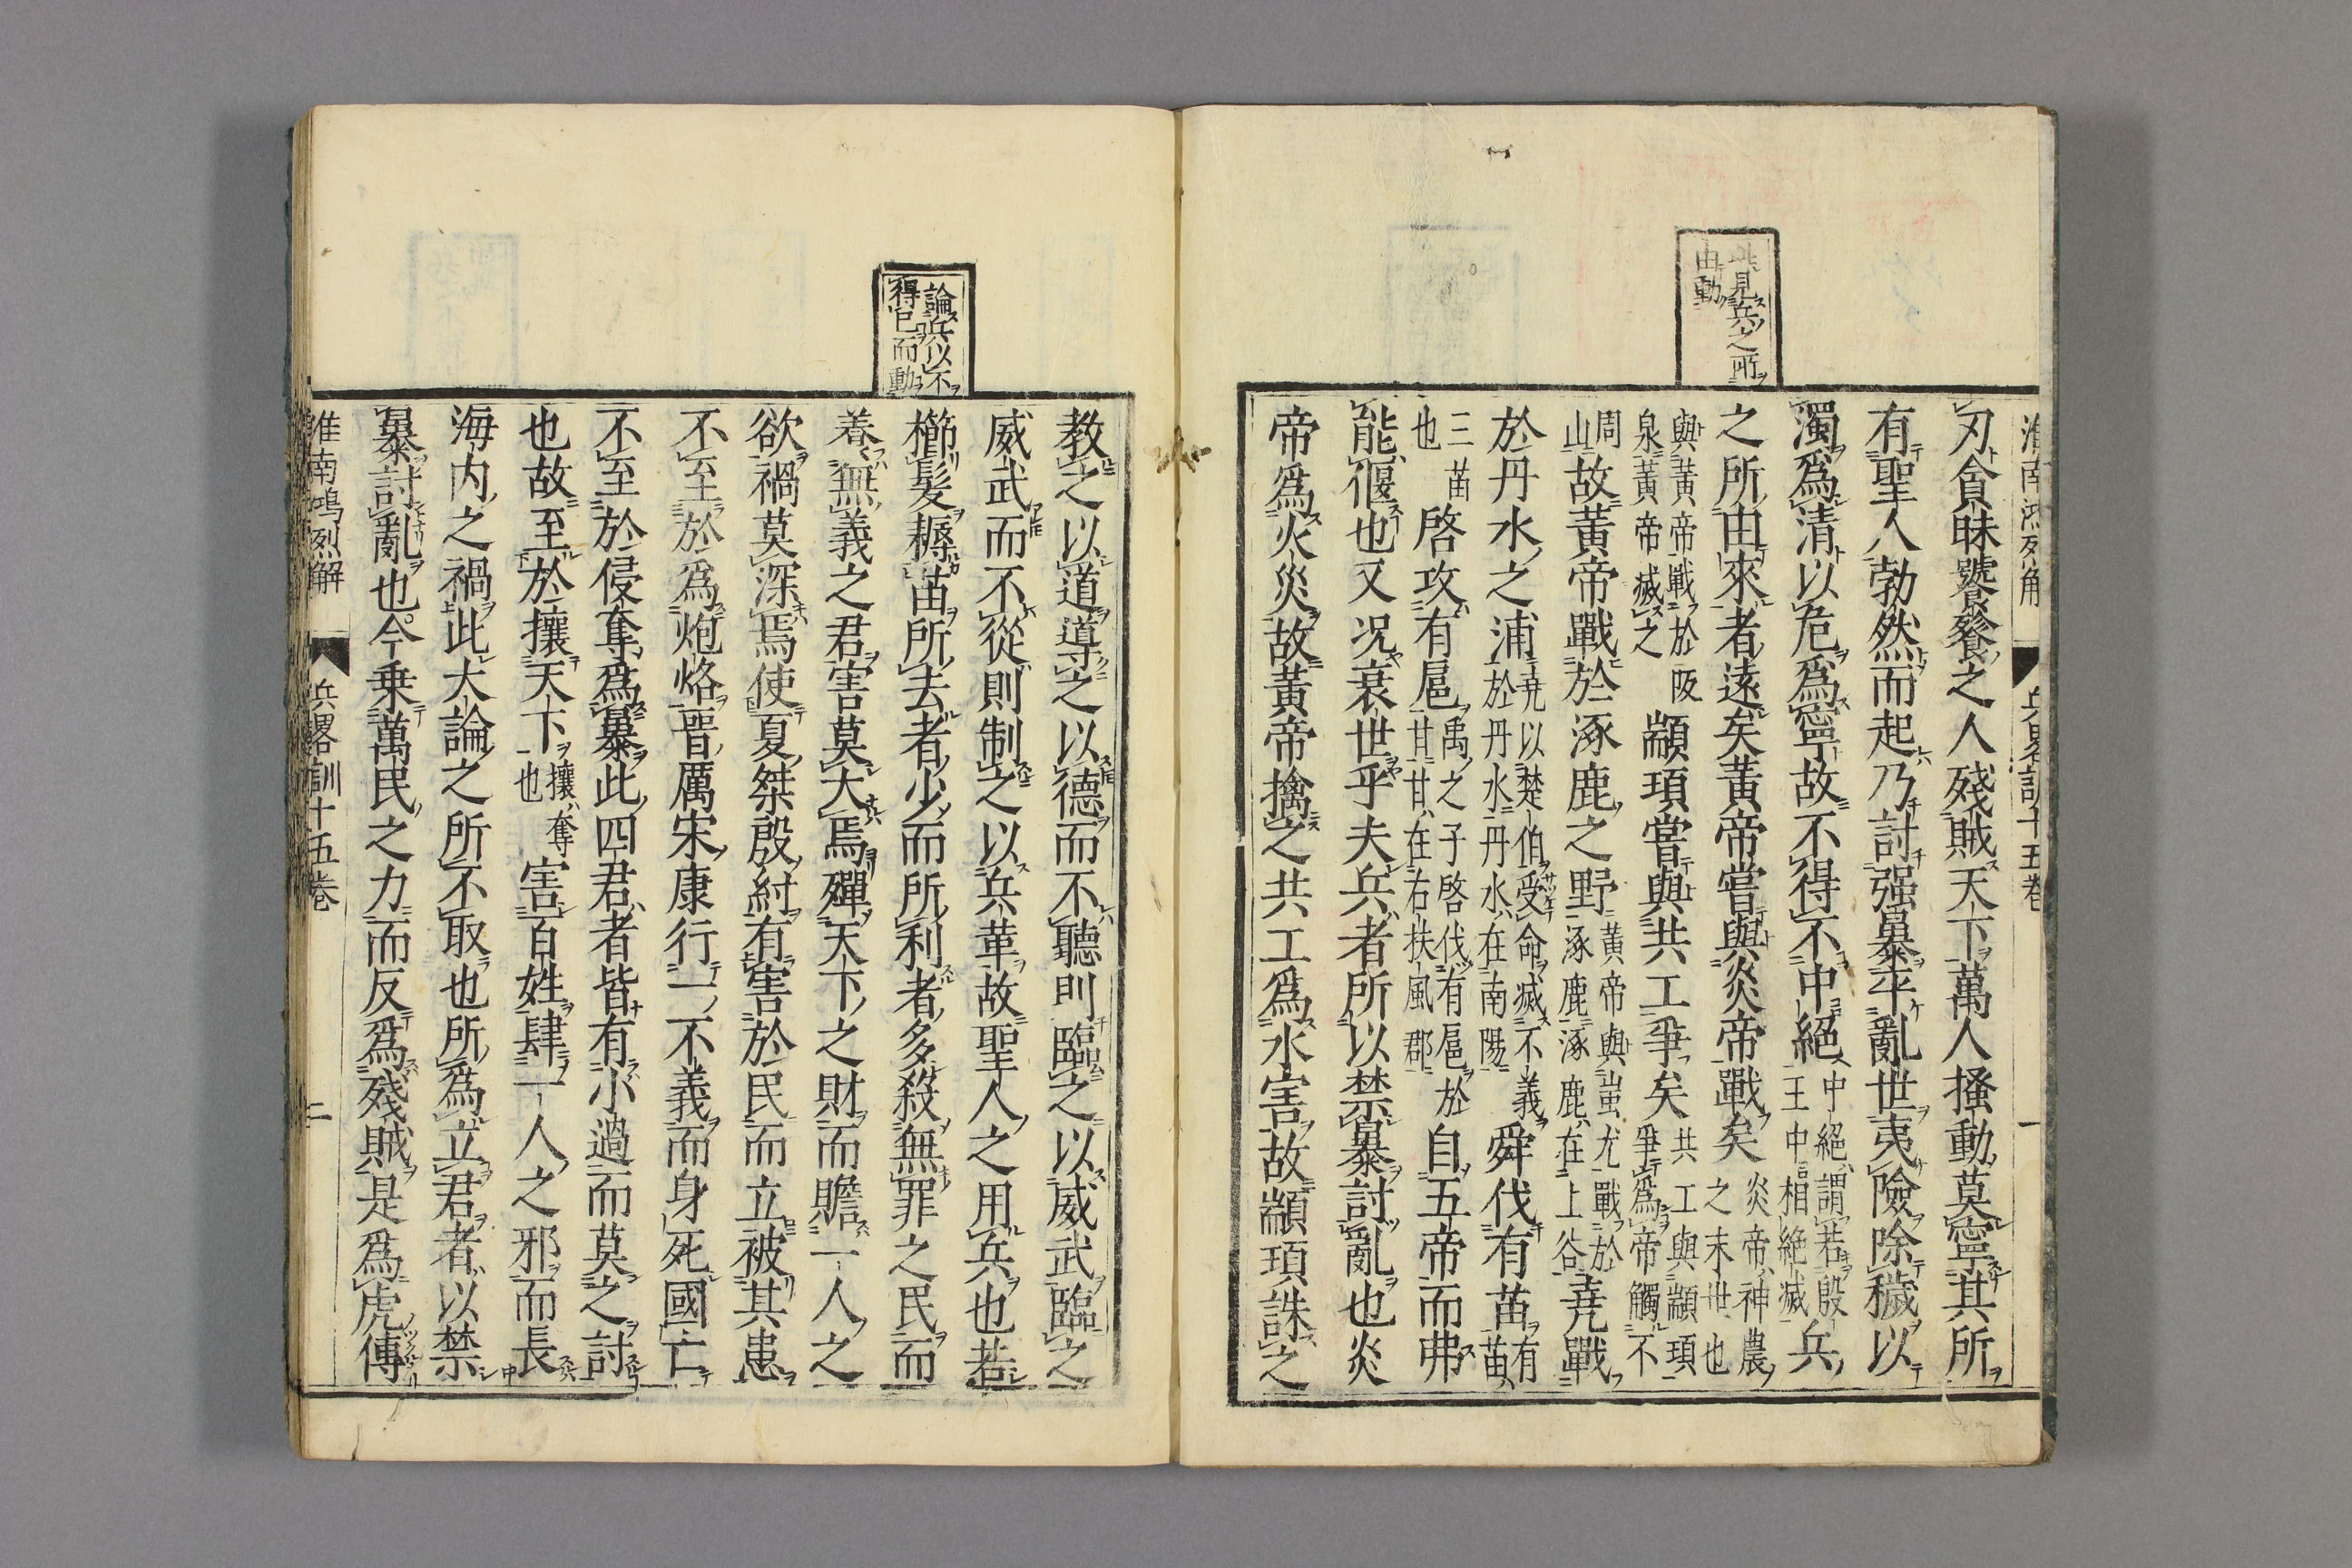 淮南鴻烈解 兵畧訓十五巻 一
此見兵之所
由動
刃貪昧饕餮之人殘賊天下萬人搔動莫寧其所
有聖人勃然而起乃討强暴平亂世夷險除穢以
濁爲清以危爲寧故不得不中絕
中絕謂若殷
王中相絶滅
兵
之所由來者遠矣黃帝嘗與炎帝戰矣
炎帝神農
之末世也
與黃帝戰於阪
泉黃帝滅之
顓頊嘗與共工爭矣
共工與顓頊
爭爲帝觸不
周
山
故黃帝戰於涿鹿之野
黃帝與蚩尤戰於
涿鹿涿鹿在上谷
堯戰
於丹水之浦
堯以楚伯受命滅不義
於丹水丹水在南陽
舜伐有苗
有
苗
三苗
也
啓攻有扈
禹之子啓伐有扈於
甘甘在右扶風郡
自五帝而弗
能偃也又況衰世乎夫兵者所以禁暴討亂也炎
帝爲火災故黃帝擒之共工爲水害故顓頊誅之
論兵以不
得已而動
教之以道導之以德而不聽則臨之以威武臨之
威武而不從則制之以兵革故聖人之用兵也若
櫛髮耨苗所去者少而所利者多殺無罪之民而
養無義之君害莫大焉殫天下之財而贍一人之
欲禍莫深焉使夏桀殷紂有害於民而立被其患
不至於爲炮烙晉厲宋康行一不義而身死國亡
不至於侵奪爲暴此四君者皆有小過而莫之討
也故至於攘天下
攘奪
也
害百姓肆一人之邪而長
海内之禍此大論之所不取也所爲立君者以禁
暴討亂也今乗萬民之力而反爲殘賊是爲虎傅
淮南鴻烈解 兵畧訓十五巻 二